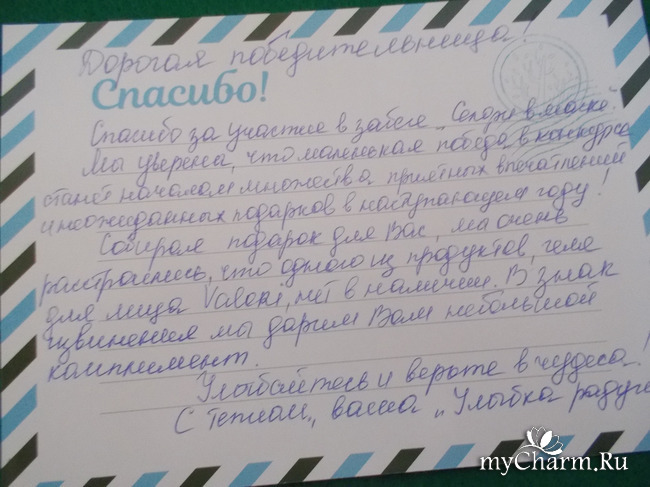 Дорогая победительница!
Спасибо!
Спасибо за участие в забеге „Селфи в маске".
Мы уверены, что маленькая победа в конкурсе
станет началом множества приятных впечатлений
и неожиданных подарков в наступающем году!
Собирая подарок для Вас, мы очень
расстроились, что одного из продуктов, геля
для лица Valori, нет в наличии. В знак
извинения мы дарим Вам небольшой
комплимент.
Улыбайтесь и верьте в чудеса!
С теплом, ваша „Улыбка радуги
myCharm.Ru